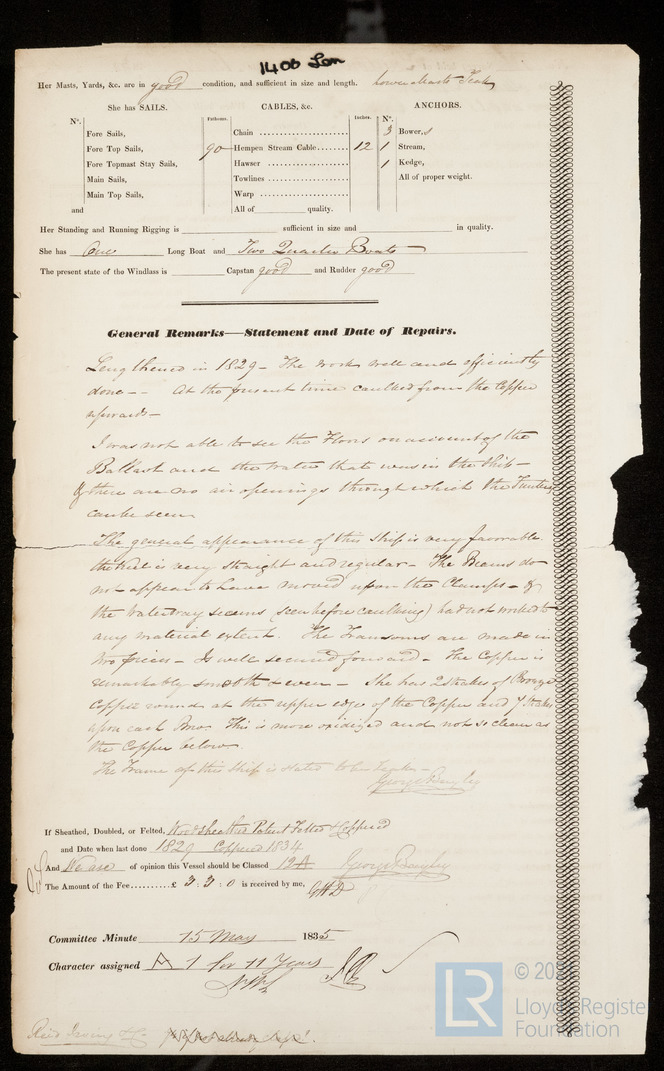 1400 Lon
Her Masts, Yards, &c. are in good condition, and sufficient in size and length. Lower Masts Teak
She has SAILS. CABLES, &c. ANCHORS.
N°. Fathoms. Inches. N°.
Fore Sails, Chain 3 Bowers
Fore Top Sails, 90 Hempen Stream Cable 12 1 Stream,
Fore Topmast Stay Sails, Hawser 1 Kedge,
Main Sails, Towlines All of proper weight.
Main Top Sails, Warp
and All of quality.
Her Standing and Running Rigging is sufficient in size and in quality.
She has One Long Boat and Two Quarter Boats
The present state of the Windlass is Capstan good and Rudder good
General Remarks—Statement and Date of Repairs.
Lengthened in 1829 - The work well and efficiently
done - - At the present time caulked from the Copper
upwards -
I was not able to see the Floors on account of the
Ballast and the water that was in the Ship -
& there are no air openings through which the Timbers
can be seen
The general appearance of this Ship is very favorable.
the Keel is very straight and regular - The Beams do
not appear to have moved upon the Clamps - &
the Waterway seams (seen before caulking) had not worked to
any material extent. The Transoms are made in
two pieces - Is well secured forward - The Copper is
remarkably smooth & even - She has 2 strakes of Bronze
Copper round at the upper edge of the Copper and 7 Strakes
upon each Bow This is more oxidized and not so clean as
the Copper below.
The Frame of this Ship is stated to be Teak -
George Bayley
If Sheathed, Doubled, or Felted, Wood Sheathed Patent Felted & Coppered
and Date when last done 1829 Coppered 1834
And We are of opinion this Vessel should be Classed 12 A George Bayley
The Amount of the Fee £ 3 : 3 : 0 is received by me,
Committee Minute 15 May 1835
Character assigned A 1 for 11 Years
Reid Irving & Co
LR © 20
Lloyd's Registe
Foundation